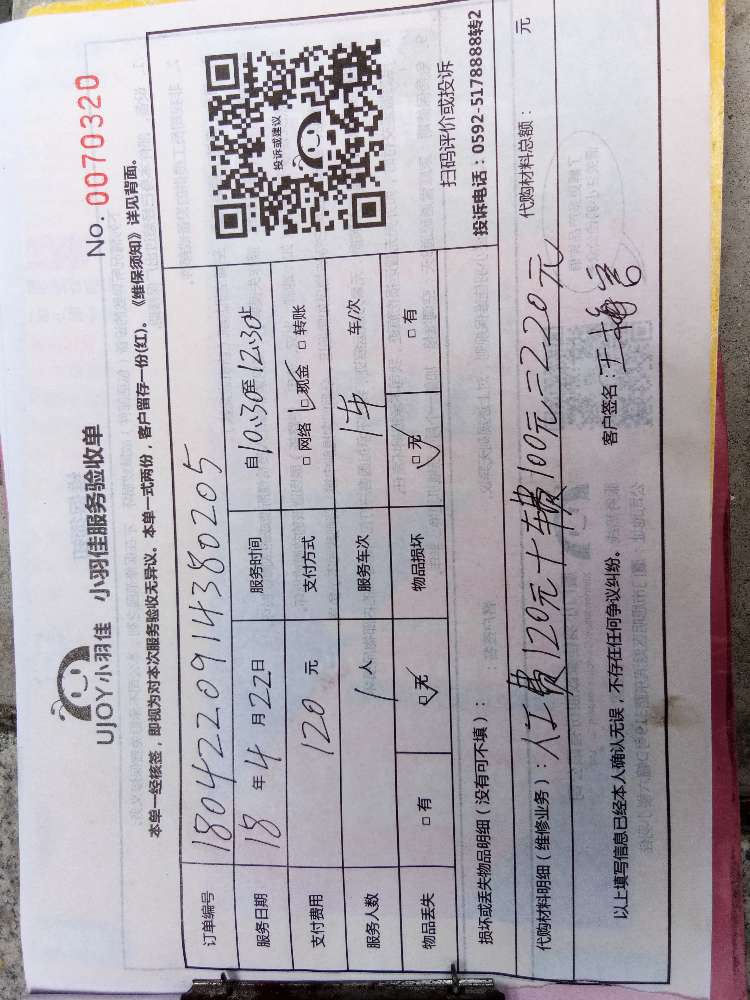 No. 0070320
UJOY小羽佳 小羽佳服务验收单
本单一经核签，即视为对本次服务验收无异议。本单一式两份，客户留存一份(红)。《维保须知》详见背面。
订单编号 1804220914380205
服务日期 18年4月22日 服务时间 自10:30至12:30止
支付费用 120元 支付方式 □网络 □现金 □转账
服务人数 1人 服务车次 1车 车/次
物品丢失 □有 □无 物品损坏 □无 □有
投诉或建议
扫码评价或投诉
投诉电话：0592-5178888转2
损坏或丢失物品明细（没有可不填）：
代购材料明细（维修业务）：人工费120元+车费100元=220元 代购材料总额： 元
以上填写信息已经本人确认无误，不存在任何争议纠纷。 客户签名：